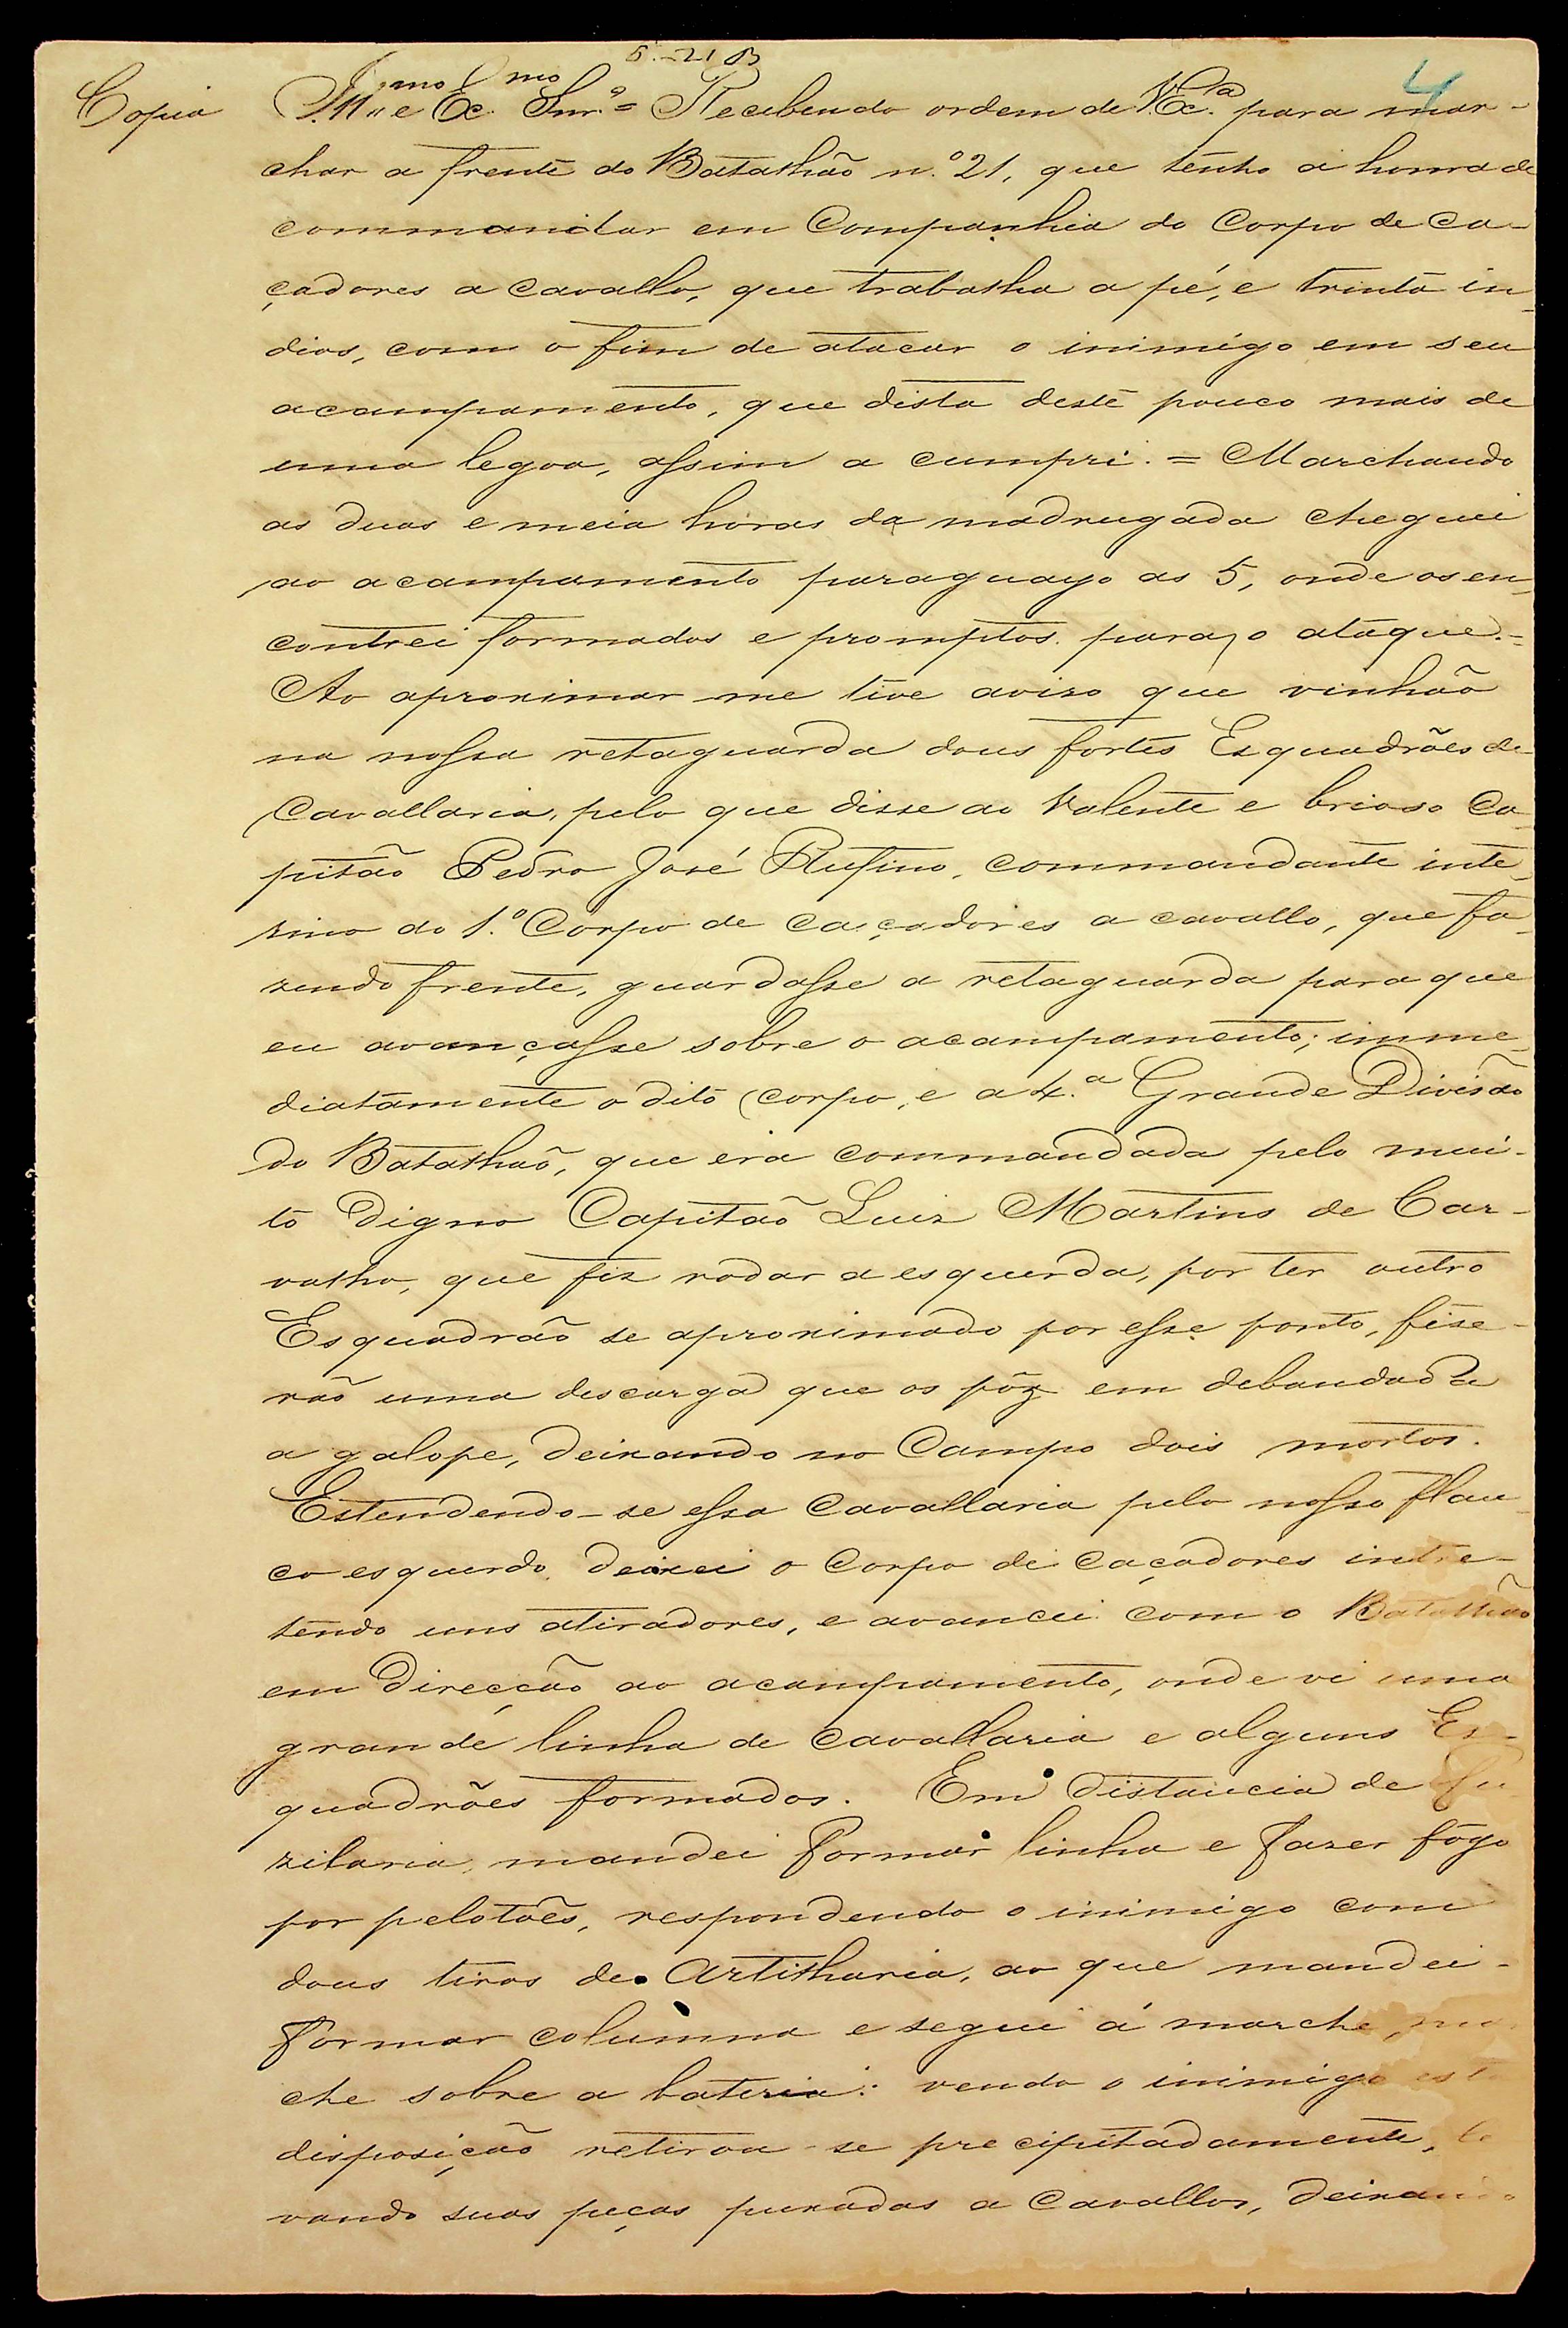 5.-21 B
4
Copia
Ill.mo e Ex.mo Snr.= Recebendo ordem de V.Ex.ca para mar-
char a frente do Batalhão n.º 21, que tenho a honra de
commandar em Companhia do Corpo de Ca-
çadores a cavallo, que trabalha a pé, e trinta in-
dios, com o fim de atacar o inimigo em seu
acampamento, que dista deste pouco mais de
uma legoa, assim a cumpri. = Marchando
as duas e meia horas da madrugada cheguei
ao acampamento paraguayo as 5, onde os en-
contrei formados e promptos para o ataque.=
Ao aproximar-me tive aviso que vinhão
na nossa retaguarda dous fortes Esquadrões de
Cavallaria, pelo que disse ao Valente e brioso Ca-
pitão Pedro José Rufino, commandante inte-
rino do 1.º Corpo de Caçadores a cavallo, que fa-
zendo frente, guardasse a retaguarda para que
eu avançasse sobre o acampamento; imme-
diatamente o dito Corpo, e a 4.ª Grande Divisão
do Batalhão, que era commandada pelo mui-
to Digno Capitão Luiz Martins de Car-
valho, que fiz rodar a esquerda, por ter outro
Esquadrão se aproximado por esse ponto, fize-
rão uma descarga que os pôz em debandada
a galope, deixando no Campo dois mortos.
Estendendo-se essa Cavallaria pelo nosso flan-
co esquerdo, deixei o Corpo de Caçadores intre-
tendo uns atiradores, e avancei com o Batalhão
em direcção ao acampamento, onde vi uma
grande linha de Cavallaria e alguns Es-
quadrões formados. Em distancia de fu-
zilaria, mandei formar linha e fazer fôgo
por pelotões, respondendo o inimigo com
dous tiros de Artilharia, ao que mandei-
formar columna e segui á marche, mar
che sobre a bateria: vendo o inimigo esta
disposição retirou-se precipitadamente, le
vando suas peças puxadas a Cavallos, deixando